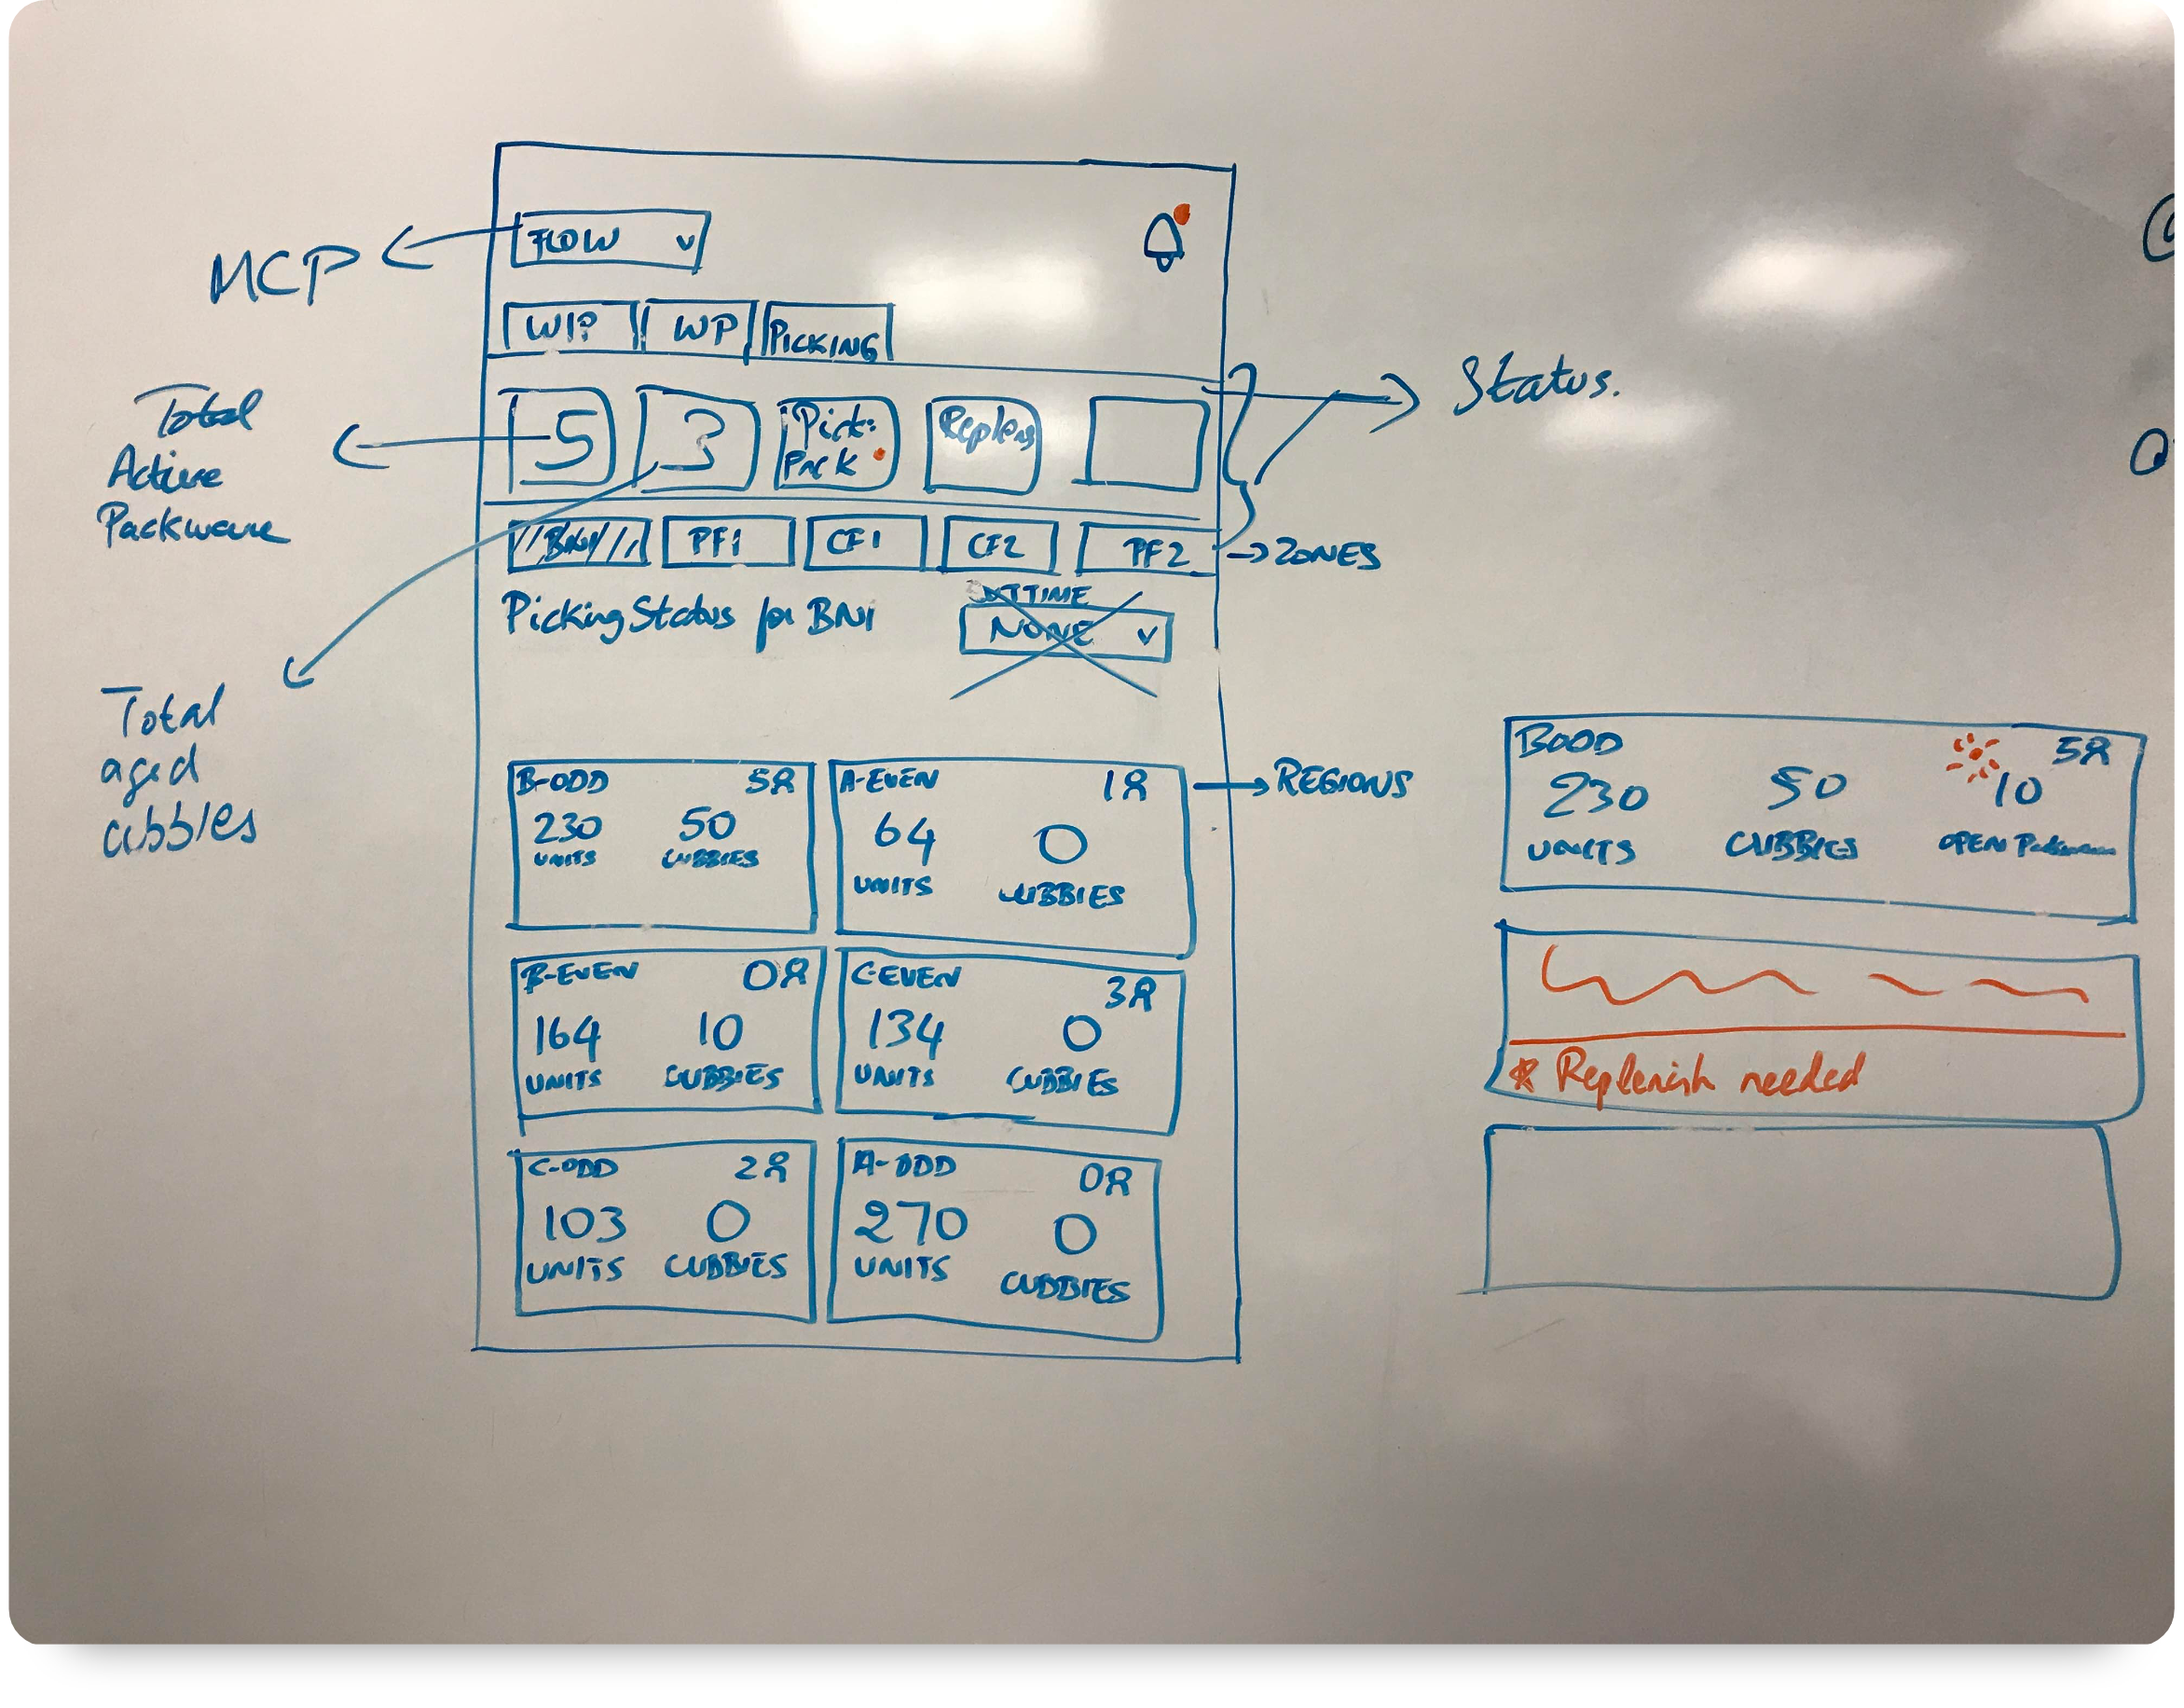 MCP
FLOW
WIP
WP
PICKING
Total
Active
Packware
5
3
Pick:
Pack
Replens
Status.
BN1
PF1
CF1
CF2
PF2
ZONES
Picking Status for BN1
NONE
Total
aged
cubbies
B-ODD 5
230 50
UNITS CUBBIES
A-EVEN 1
64 0
UNITS CUBBIES
REGIONS
B-EVEN 0
164 10
UNITS CUBBIES
C-EVEN 3
134 0
UNITS CUBBIES
C-ODD 2
103 0
UNITS CUBBIES
A-ODD 0
270 0
UNITS CUBBIES
BODD 5
230 50 10
UNITS CUBBIES OPEN Packware
* Replenish needed